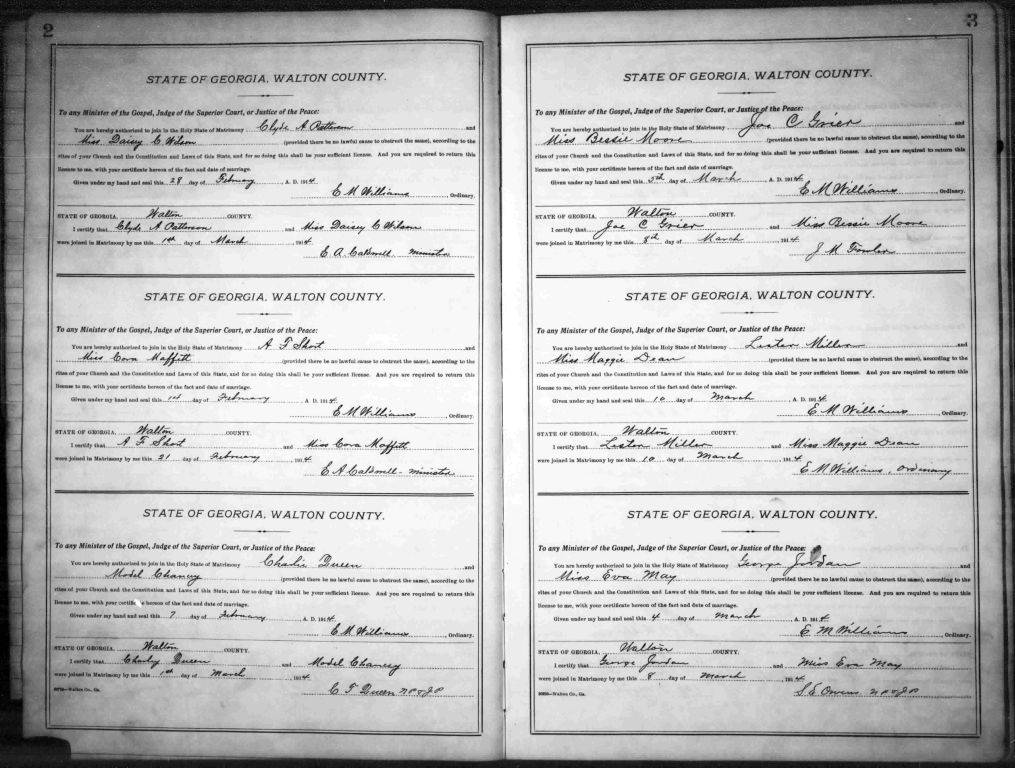 2
STATE OF GEORGIA, WALTON COUNTY.
To any Minister of the Gospel, Judge of the Superior Court, or Justice of the Peace:
You are hereby authorized to join in the Holy State of Matrimony Clyde A Patterson and
Miss Daisy C Wilson (provided there be no lawful cause to obstruct the same), according to the
rites of your Church and the Constitution and Laws of this State, and for so doing this shall be your sufficient license. And you are required to return this
license to me, with your certificate hereon of the fact and date of marriage.
Given under my hand and seal this 28 day of February A. D. 1914
E M Williams
STATE OF GEORGIA, Walton COUNTY.
I certify that Clyde A Patterson and Miss Daisey C Wilson
were joined in Matrimony by me this 1st day of March 1914
E. A. Caldwell minister
STATE OF GEORGIA, WALTON COUNTY.
To any Minister of the Gospel, Judge of the Superior Court, or Justice of the Peace:
You are hereby authorized to join in the Holy State of Matrimony A F Short and
Miss Cora Moffett (provided there be no lawful cause to obstruct the same), according to the
rites of your Church and the Constitution and Laws of this State, and for so doing this shall be your sufficient license. And you are required to return this
license to me, with your certificate hereon of the fact and date of marriage.
Given under my hand and seal this day of February A. D. 1914
E M Williams, Ordinary.
STATE OF GEORGIA, Walton COUNTY.
I certify that A F Short and Miss Cora Moffett
were joined in Matrimony by me this 21 day of February 1914
E A Caldwell - minister
STATE OF GEORGIA, WALTON COUNTY.
To any Minister of the Gospel, Judge of the Superior Court, or Justice of the Peace:
You are hereby authorized to join in the Holy State of Matrimony Charlie Queen and
Model Chancey (provided there be no lawful cause to obstruct the same), according to the
rites of your Church and the Constitution and Laws of this State, and for so doing this shall be your sufficient license. And you are required to return this
license to me, with your certificate hereon of the fact and date of marriage.
Given under my hand and seal this 7 day of February A. D. 1914
E. M. Williams, Ordinary.
STATE OF GEORGIA, Walton COUNTY.
I certify that Charley Queen and Model Chancey
were joined in Matrimony by me this 1st day of March 1914
C F Queen N P & J P
Walton Co., Ga.
3
STATE OF GEORGIA, WALTON COUNTY.
To any Minister of the Gospel, Judge of the Superior Court, or Justice of the Peace:
You are hereby authorized to join in the Holy State of Matrimony Joe C Grier and
Miss Bessie Moore (provided there be no lawful cause to obstruct the same), according to the
rites of your Church and the Constitution and Laws of this State, and for so doing this shall be your sufficient license. And you are required to return this
license to me, with your certificate hereon of the fact and date of marriage.
Given under my hand and seal this 5th day of March A. D. 1914
E M Williams, Ordinary.
STATE OF GEORGIA, Walton COUNTY.
I certify that Joe C Grier and Miss Bessie Moore
were joined in Matrimony by me this 8th day of March 1914
J. M. Fowler
STATE OF GEORGIA, WALTON COUNTY.
To any Minister of the Gospel, Judge of the Superior Court, or Justice of the Peace:
You are hereby authorized to join in the Holy State of Matrimony Lester Miller and
Miss Maggie Dean (provided there be no lawful cause to obstruct the same), according to the
rites of your Church and the Constitution and Laws of this State, and for so doing this shall be your sufficient license. And you are required to return this
license to me, with your certificate hereon of the fact and date of marriage.
Given under my hand and seal this 10 day of March, A. D. 1914
E M Williams, Ordinary.
STATE OF GEORGIA, Walton COUNTY.
I certify that Lester Miller and Miss Maggie Dean
were joined in Matrimony by me this 10 day of March 1914
E M Williams, Ordinary
STATE OF GEORGIA, WALTON COUNTY.
To any Minister of the Gospel, Judge of the Superior Court, or Justice of the Peace:
You are hereby authorized to join in the Holy State of Matrimony George Jordan and
Miss Eva May (provided there be no lawful cause to obstruct the same), according to the
rites of your Church and the Constitution and Laws of this State, and for so doing this shall be your sufficient license. And you are required to return this
license to me, with your certificate hereon of the fact and date of marriage.
Given under my hand and seal this 4 day of March A. D. 1914
E M Williams Ordinary.
STATE OF GEORGIA, Walton COUNTY.
I certify that George Jordan and Miss Eva May
were joined in Matrimony by me this 8 day of March 1914
S. E. Owens N P & J P
Walton Co., Ga.